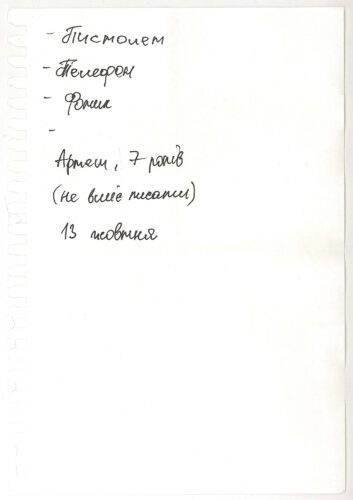 - Пистолет
- Телефон
- Фонік
-
Артем, 7 років
(не вміє писати)
13 жовтня